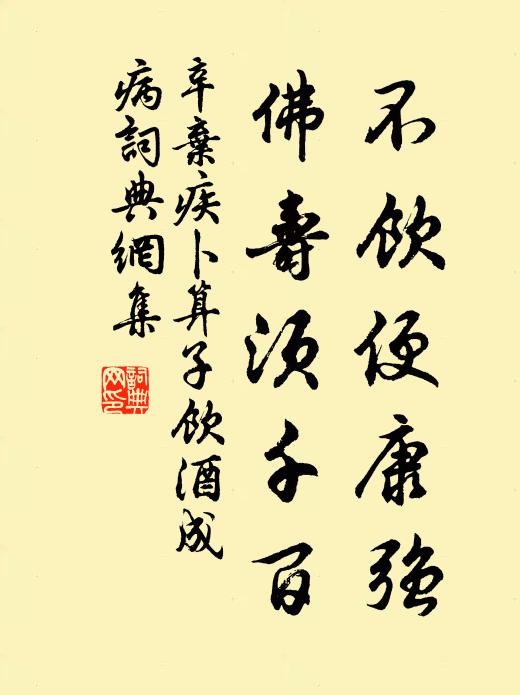 不飲便康強
佛壽須千百
辛棄疾卜算子飲酒成
病詞典網集
詞典网印